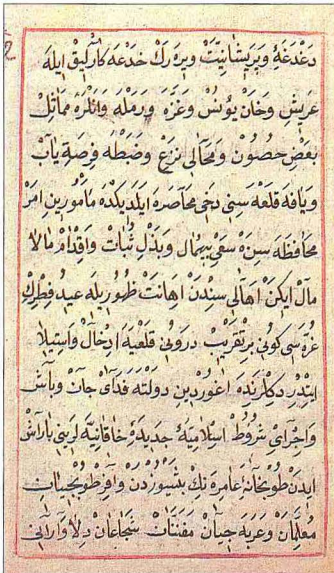 دغدغهٔ و پریشانیت ویره رك خدعه كارلیق ایله
عریش و خان یونس و غزه و رمله و انلره مماثل
بعض حصون و محالی نزع و ضبطه فرصت یاب
و یافه قلعه سنی دخی محاصره ایلدیكده مأمورین امر
محافظه سنده سعی بیهمال و بذل ثبات و اقدام مالا
مال ایكن اهالی سندن اهانت ظهوریله عید فطرك
غره سی كونی بر تقریب درون قلعه یه ادخال و استیلا
ایتدیر دكلرنده اغور دین دولته فدای جان و باش
و اجرای شروط اسلامیهٔ جدیدهٔ خاقانیه لرینی باراش
ایدن طوبخانهٔ عامره نك بشیوزدن وافر طوبجیان
معلمان و عربه جیان مفتنان شجاعان دلاوارانی